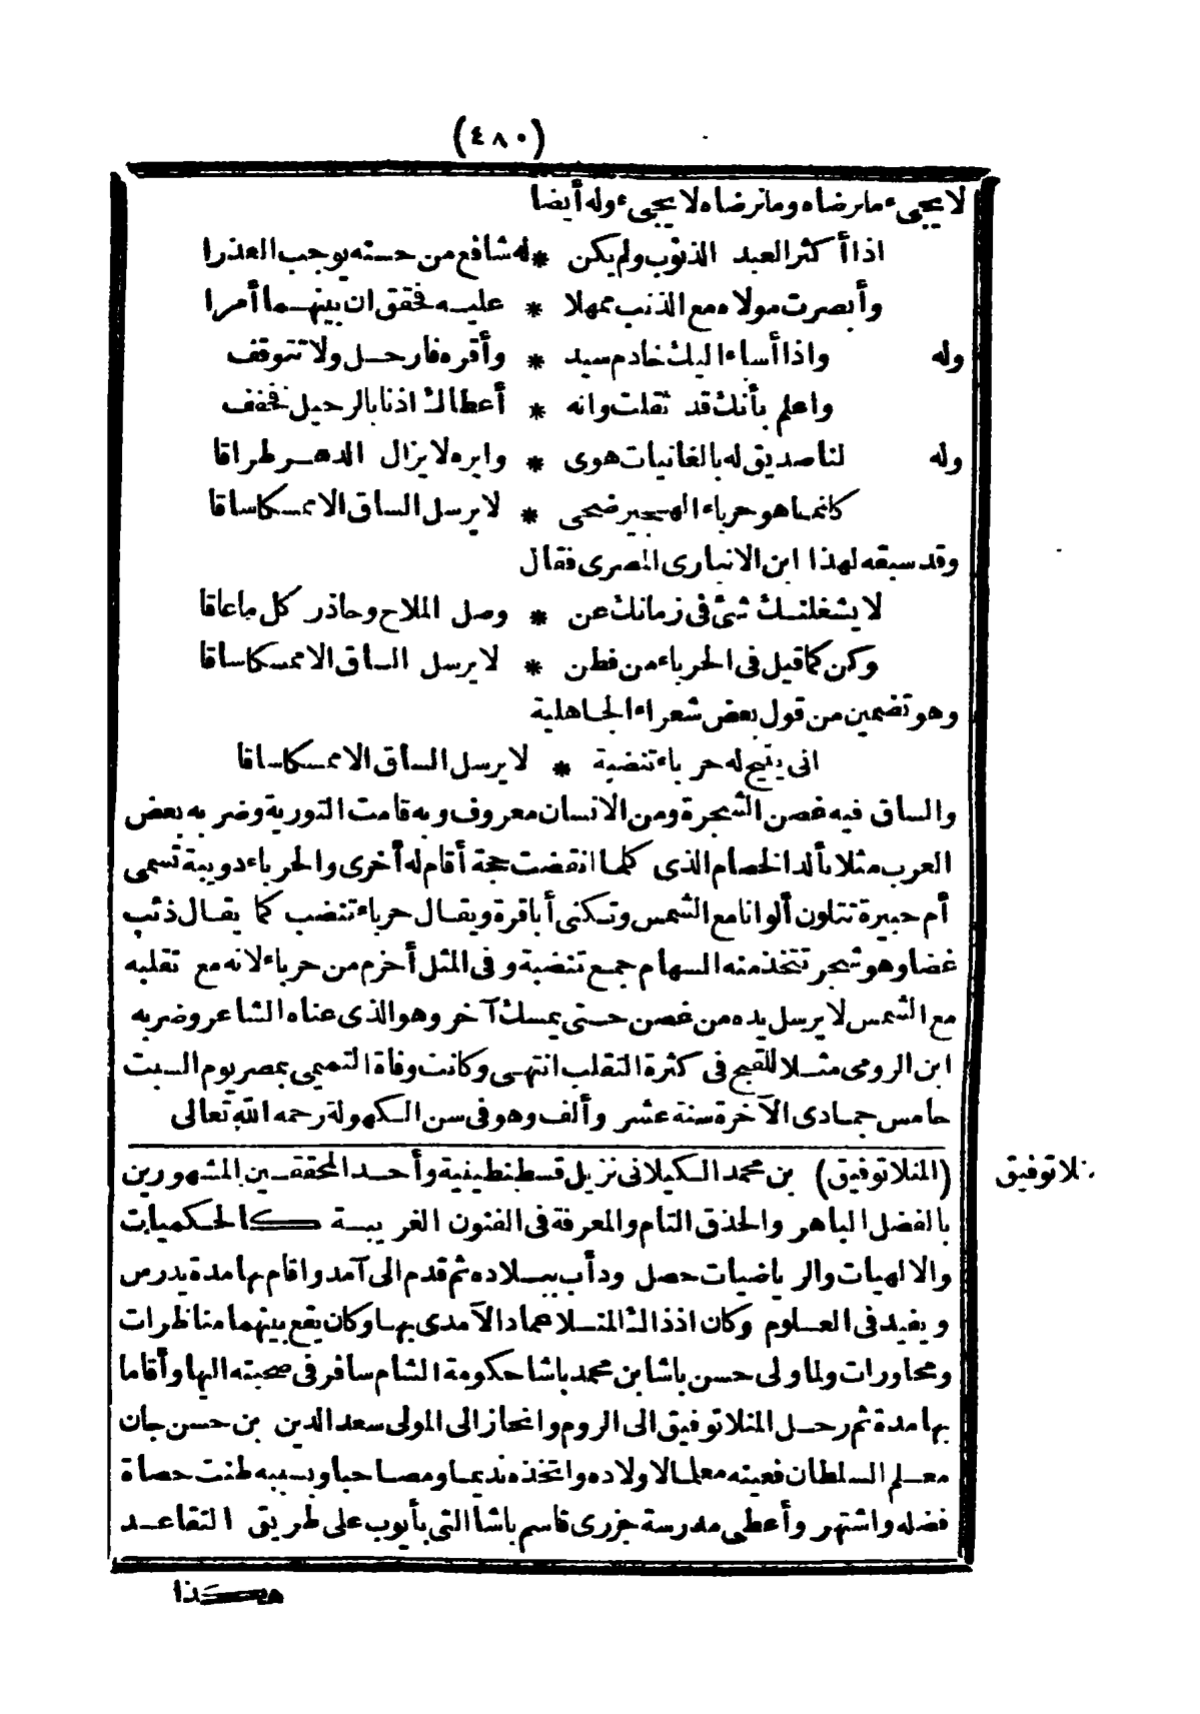 (٤٨٠)
لا يجىء ما نرضاه وما نرضاه لا يجىء وله أيضا
اذا أكثر العبد الذنوب ولم يكن * له شافع من حسنه يوجب العذرا
وأبصرت مولاه مع الذنب ممهلا * عليه فحقق ان بينهما أمرا
وله واذا أساء اليك خادم سيد * وأقره فارحل ولا تتوقف
واعلم بأنك قد ثقلت وانه * أعطاك اذنا بالرحيل فخفف
وله لنا صديق له بالغانيات هوى * وايره لا يزال الدهر طراقا
كانما هو حرباء الهجير ضحى * لا يرسل الساق الا ممسكا ساقا
وقد سبقه لهذا ابن الانبارى المصرى فقال
لا يشغلنك شئ فى زمانك عن * وصل الملاح وحاذر كل ما عاقا
وكن كما قيل فى الحرباء من فطن * لا يرسل الساق الا ممسكا ساقا
وهو تضمين من قول بعض شعراء الجاهلية
انى يتيح له حرباء تنضبة * لا يرسل الساق الا ممسكا ساقا
والساق فيه غصن الشجرة ومن الانسان معروف وبه قامت التورية وضربه بعض
العرب مثلا بألد الخصام الذى كلما انقضت حجة أقام له أخرى والحرباء دويبة تسمى
أم حبيرة تتلون ألوانا مع الشمس وتكنى أبا قرة ويقال حرباء تنضب كما يقال ذئب
غضا وهو شجر تتخذ منه السهام جمع تنضبة وفى المثل أحزم من حرباء لانه مع تقلبه
مع الشمس لا يرسل يده من غصن حتى يمسك آخر وهو الذى عناه الشاعر وضربه
ابن الرومى مثلا للقبح فى كثرة التقلب انتهى وكانت وفاة التميمى بمصر يوم السبت
خامس جمادى الآخرة سنة عشر وألف وهو فى سن الكهولة رحمه الله تعالى
(المنلا توفيق) بن محمد الكيلانى نزيل قسطنطينية وأحد المحققين المشهورين
نلا توفيق
بالفضل الباهر والحذق التام والمعرفة فى الفنون الغريبة كالحكميات
والالهيات والرياضيات حصل ودأب ببلاده ثم قدم الى آمد واقام بها مدة يدرس
ويفيد فى العلوم وكان اذ ذاك المنلا عماد الآمدى بها وكان يقع بينهما مناظرات
ومحاورات ولما ولى حسن باشا بن محمد باشا حكومة الشام سافر فى صحبته اليها وأقاما
بها مدة ثم رحل المنلا توفيق الى الروم وانحاز الى المولى سعد الدين بن حسن جان
معلم السلطان فعينه معلما لاولاده واتخذه نديما ومصاحبا وبسببه طنت حصاة
فضله واشتهر وأعطى مدرسة جزرى قاسم باشا التى بأيوب على طريق التقاعد
هكذا